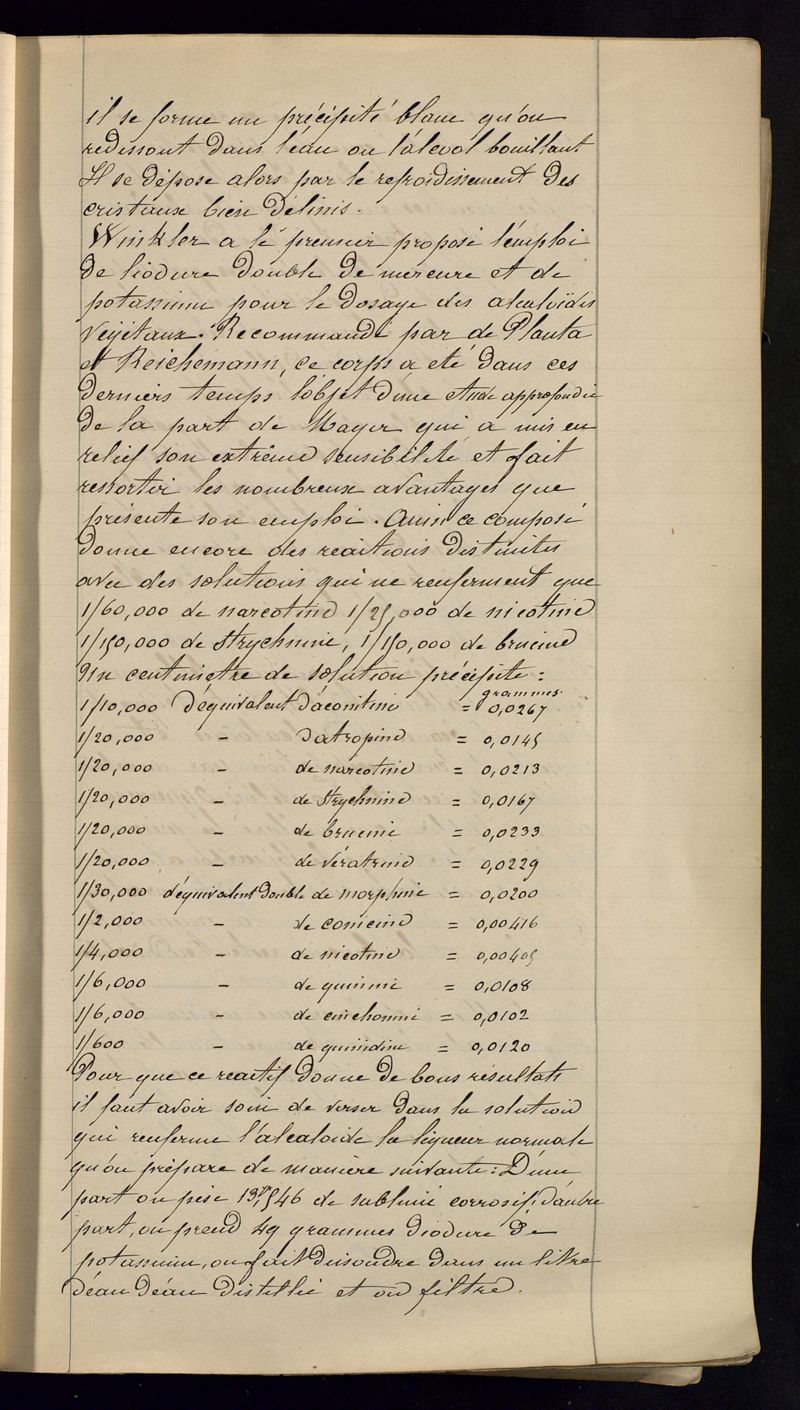 il se forme un précipité blanc qu'on
redissout dans l'eau ou l'alcool bouillant
Il se dépose alors par le refroidissement des
cristaux bien définis.
Winkler a le premier proposé l'emploi
de l'iodure double de mercure et de
potassium pour le dosage des alcaloïdes
végétaux. Recommandé par de Planta
et Reichemann, ce corps a été dans ces
derniers temps l'objet d'une etude approfondie
de la part de Mayer qui a mis en
relief son extrême sensibilité et fait
ressortir les nombreux avantages que
présente son emploi. Ainsi ce composé
donne encore des reactions distinctes
avec des solutions qui ne renferment que
1/60,000 de narcotine 1/25,000 de nicotine
1/150,000 de strychnine, 1/150,000 de brucine
Un centimetre de solution précipite :
grammes
1/10,000 d'équivalent d'aconitine = 0,0267
1/20,000 - d'atropine = 0,0145
1/20,000 - de narcotine = 0,0213
1/20,000 - de strychnine = 0,0167
1/20,000 - de brucine = 0,0233
1/20,000 - de vératrine = 0,0229
1/30,000 d'équivalent double de morphine = 0,0200
1/2,000 - de conicine = 0,00416
1/4,000 - de nicotine = 0,00405
1/6,000 - de quinine = 0,0108
1/6,000 - de cinchonine = 0,0102
1/600 - de quinidine = 0,0120
Pour que ce reactif donne de bons résultats
il faut avoir soin de verser dans la solution
qui renferme l'alcaloïde la liqueur normale
qu'on prépare de manière suivante : D'une
part on pèse 13gr,546 de sublimé corrosif; d'autre
part, on prend 49 grammes d'iodure de
potassium, on fait dissoudre dans un litre
d'éau d'éau distillée et on filtre.